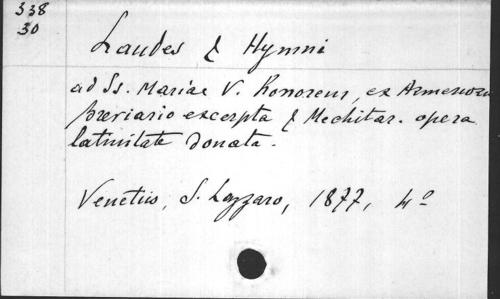 338
30
Laudes & Hymni
ad Ss. Mariae V. honorem, ex Armenorum
breviario excerpta & Mechitar. opera
latinitate donata.
Venetiis, S. Lazzaro, 1877, 4º